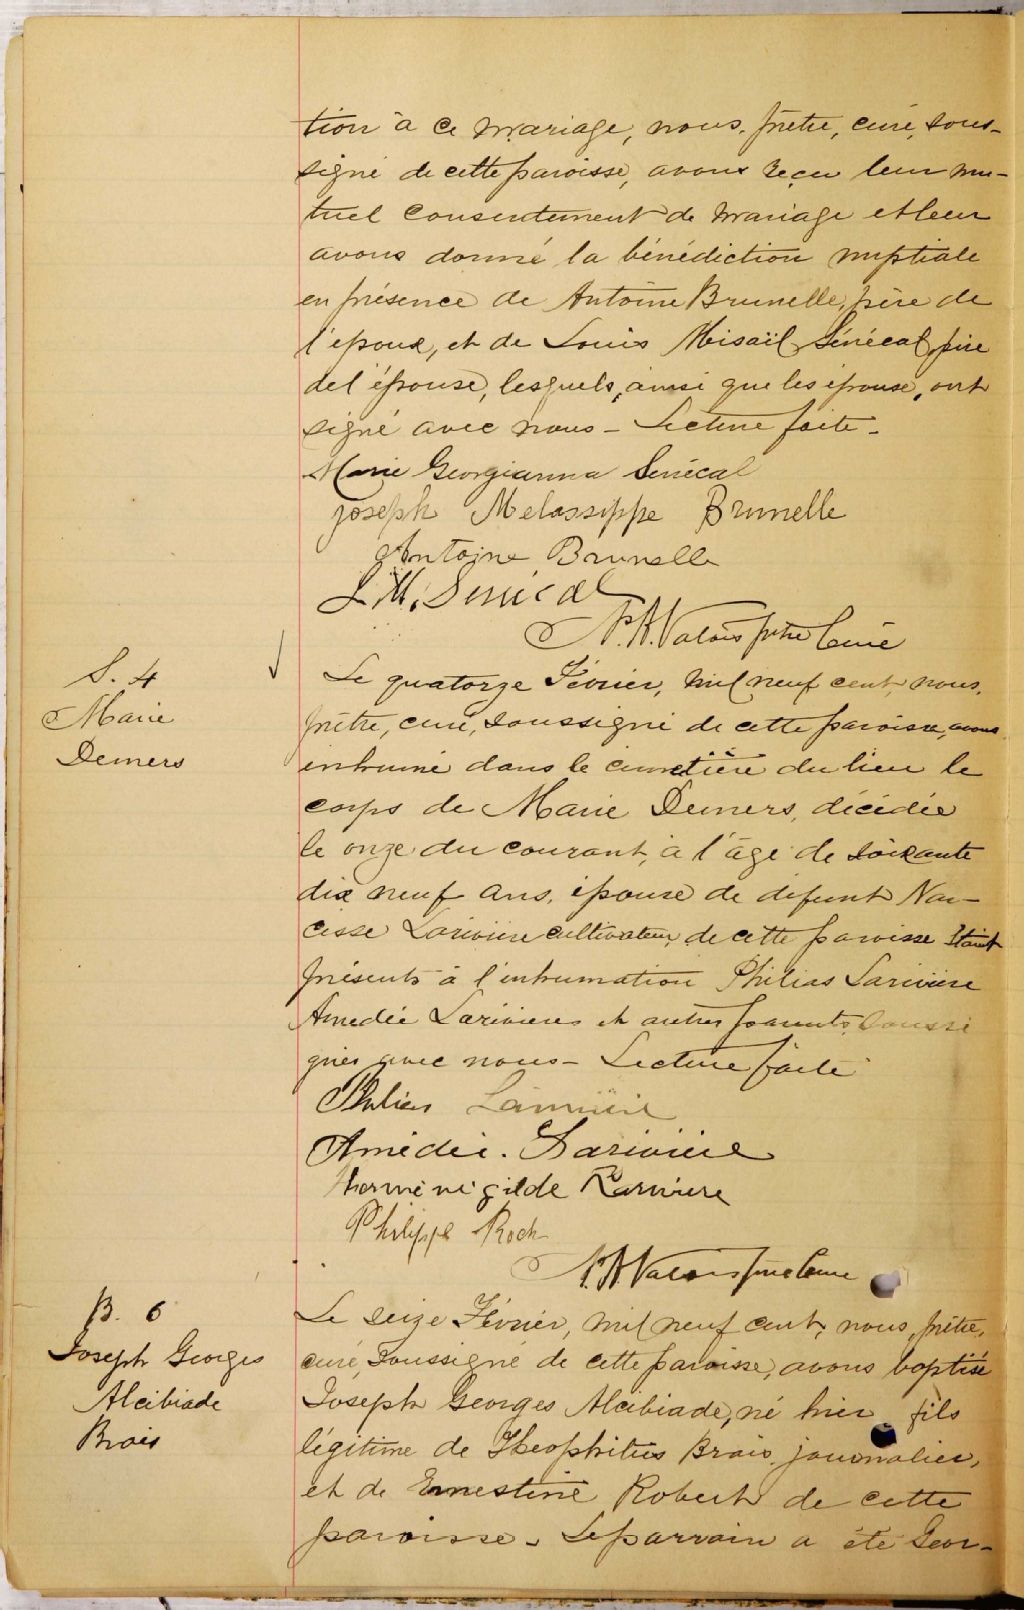 tion à ce mariage, nous, prêtre, curé, sous-
signé de cette paroisse, avons reçu leur mu-
tuel consentement de mariage et leur
avons donné la bénédiction nuptiale
en présence de Antoine Brunelle, père de
l'époux, et de Louis Misaël Sénécal, père
de l'épouse, lesquels, ainsi que les époux, ont
signé avec nous - Lecture faite -
Marie Georgianna Senécal
joseph Melassippe Brunelle
Antoine Brunelle
L. M. Senécal
A. Valois ptre Curé
S. 4
Marie
Demers
Le quatorze Février, mil neuf cent, nous,
prêtre, curé, soussigné de cette paroisse, avons
inhumé dans le cimetière du lieu le
corps de Marie Demers, décédée
le onze du courant, à l'âge de soixante
dix neuf ans, épouse de défunt Nar-
cisse Larivière cultivateur, de cette paroisse Etaient
présents à l'inhumation Philias Larivière
Amedée Larivieres et autres parents, soussi
gnés avec nous - Lecture faite
Philias Larivière
Amédée. Larivière
Herménégilde Larivière
Philippe Roch
A. Valois ptre Curé
B. 6
Joseph Georges
Alcibiade
Brais
Le seize Février, mil neuf cent, nous, prêtre,
curé, soussigné de cette paroisse, avons baptisé
Joseph Georges Alcibiade, né hier, fils
légitime de Theophilus Brais, journalier,
et de Ernestine Robert de cette
paroisse. Le parrain a été Geor-